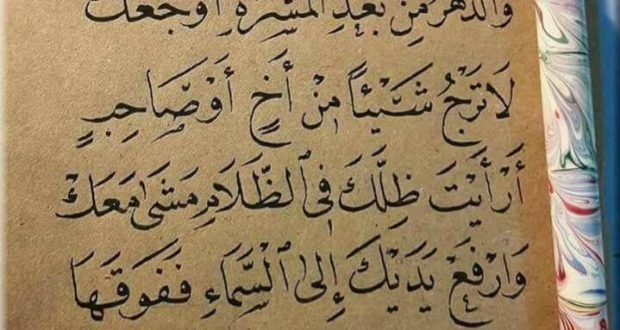 وَالدَّهْرُ مِنْ بَعْدِ الْمَسَرَّةِ أَوْجَعَكْ
لَا تَرْجُ شَيْئاً مِنْ أَخٍ أَوْ صَاحِبٍ
أَرَأَيْتَ ظِلَّكَ فِي ٱلظَّلَامِ مَشَى مَعَكْ
وَارْفَعْ يَدَيْكَ إِلَى ٱلسَّمَاءِ فَفَوْقَهَا